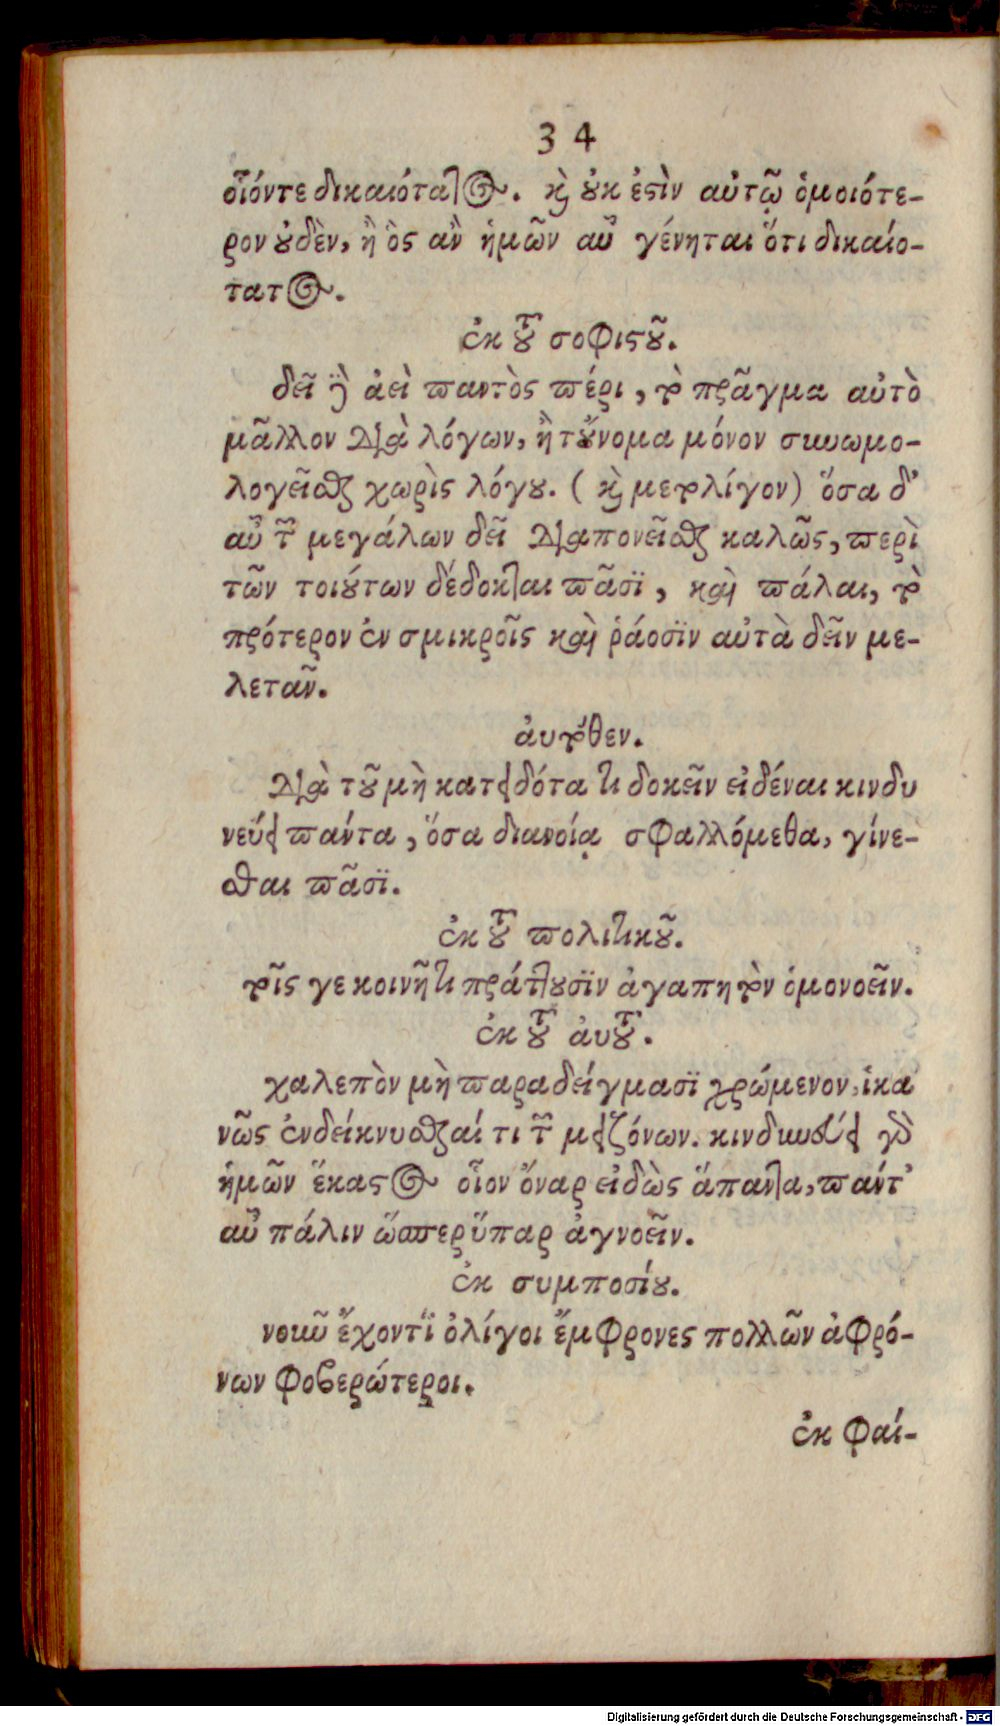 34
οἷόντε δικαιότατος. καὶ οὐκ ἐστὶν αὐτῷ ὁμοιότε-
ρον οὐδὲν, ἢ ὃς ἂν ἡμῶν αὖ γένηται ὅτι δικαιό-
τατος.
ἐκ τοῦ σοφιστοῦ.
δεῖ δὲ ἀεὶ παντὸς πέρι, τὸ πρᾶγμα αὐτὸ
μᾶλλον διὰ λόγων, ἢ τοὔνομα μόνον συνωμο-
λογεῖσθαι χωρὶς λόγου. (καὶ μετ' ὀλίγον) ὅσα δ'
αὖ τῶν μεγάλων δεῖ διαπονεῖσθαι καλῶς, περὶ
τῶν τοιούτων δέδοκται πᾶσϊ, καὶ πάλαι, τὸ
πρότερον ἐν σμικροῖς καὶ ῥάοσϊν αὐτὰ δεῖν με-
λετᾶν.
ἀυτόθεν.
διὰ τοῦ μὴ κατειδότα τι δοκεῖν εἰδέναι κινδυ
νεύει πάντα, ὅσα διανοίᾳ σφαλλόμεθα, γίνε-
σθαι πᾶσϊ.
ἐκ τοῦ πολιτικοῦ.
τοῖς γε κοινῇ τι πράττουσϊν ἀγαπητὸν ὁμονοεῖν.
ἐκ τοῦ ἀυτοῦ.
χαλεπὸν μὴ παραδείγμασϊ χρώμενον, ἱκα
νῶς ἐνδείκνυσθαί τι τῶν μειζόνων. κινδυνεύει γὰρ
ἡμῶν ἕκαστος οἷον ὄναρ εἰδὼς ἅπαντα, πάντ'
αὖ πάλιν ὥσπερ ὕπαρ ἀγνοεῖν.
ἐκ συμποσίου.
νοῦν ἔχοντϊ ὀλίγοι ἔμφρονες πολλῶν ἀφρό-
νων φοβερώτεροι.
ἐκ Φαί-
Digitalisierung gefördert durch die Deutsche Forschungsgemeinschaft - DFG